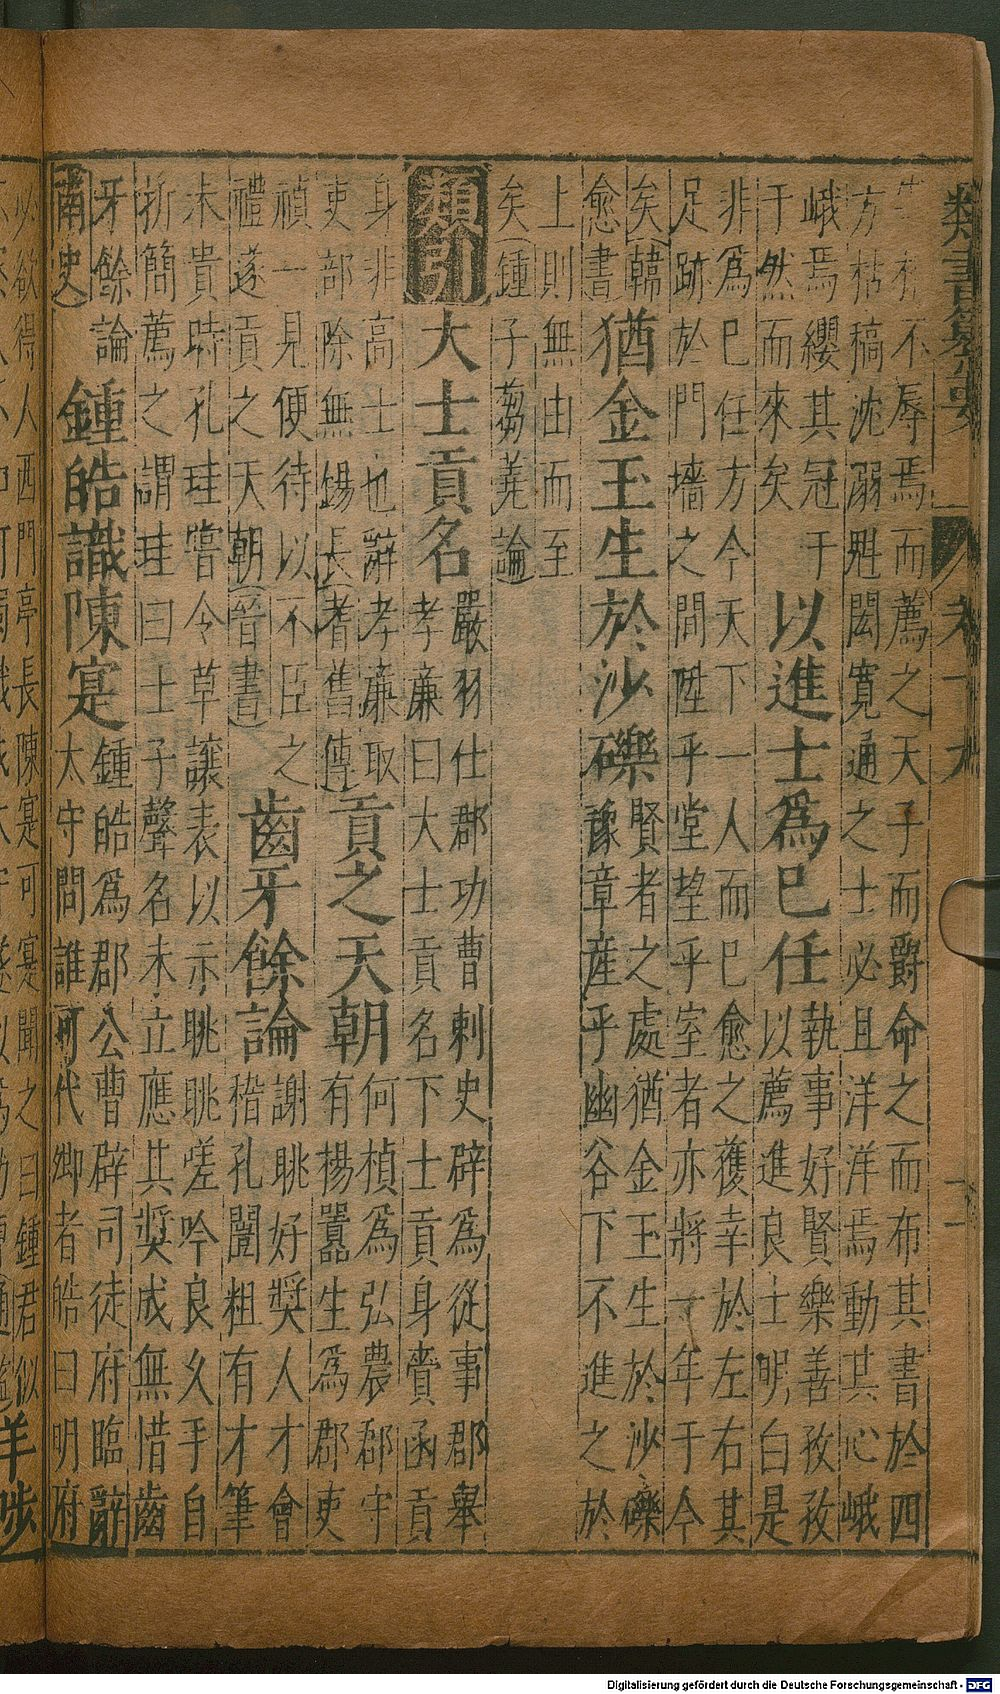 類書纂要
不辱焉而薦之天子而爵命之而布其書於四
方枯槁沈溺魁閎寬通之士必且洋洋焉動其心峨
峨焉纓其冠于
于然而來矣
以進士爲已任
執事好賢樂善孜孜
以薦進良士明白是
非爲已任方今天下一人而已愈之獲幸於左右其
足跡於門墻之間陞乎堂望乎室者亦將一年于今
矣韓
愈書
猶金玉生於沙礫
賢者之處猶金玉生於沙礫
豫章産乎幽谷下不進之於
上則無由而至
矣鍾子芻蕘論
類引
大士貢名
嚴羽仕郡功曹刺史辟爲從事郡舉
孝亷曰大士貢名下士貢身賷函貢
身非高士也辭孝亷取
吏部除無錫長耆舊傳
貢之天朝
何楨爲弘農郡守
有楊囂生爲郡吏
禎一見便待以不臣之
禮遂貢之天朝晉書
齒牙餘論
謝眺好奬人才會
稽孔闓粗有才筆
未貴時孔珪嘗令草讓表以示眺眺嗟吟良久手自
折簡薦之謂珪曰士子聲名未立應其奬成無惜齒
牙餘論
南史
鍾皓識陳寔
鍾皓爲郡公曹辟司徒府臨辭
太守問誰可代卿者皓曰明府
必欲得人西門亭長陳寔可寔聞之曰鍾君似
羊陟
Digitalisierung gefördert durch die Deutsche Forschungsgemeinschaft - DFG